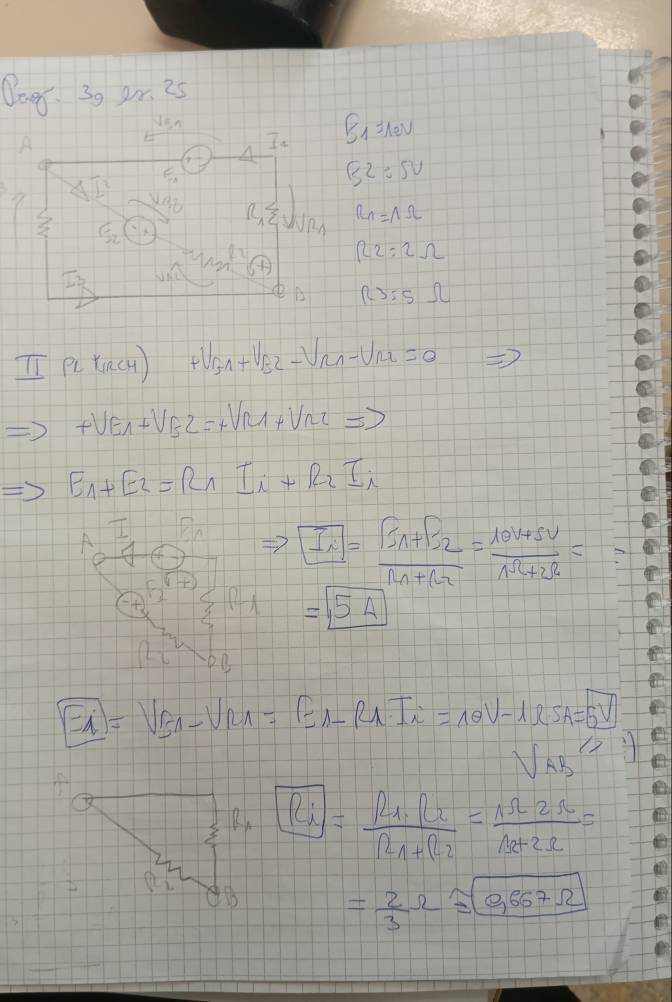 Pag. 39 es. 25
VE1
A
I1
E1
E1=10V
E2=5V
I2
VE2
E2
R1
VR1
R1=1Ω
R2
VR2
B
R2=2Ω
I3
R3=5 Ω
II PR KIRCH) +VE1+VE2-VR1-VR2=0 =>
=> +VE1+VE2=+VR1+VR2 =>
=> E1+E2=R1 Ii+R2 Ii
A I E1
E2 (+)
R1
R2
B
=> Ii = E1+E2 / R1+R2 = 10V+5V / 1Ω+2Ω =
= 5 A
Ei = VE1-VR1 = E1-R1·Ii = 10V-1Ω·5A=5V
VAB
A
R1
R2
B
Ri = R1·R2 / R1+R2 = 1Ω·2Ω / 1Ω+2Ω =
= 2/3 Ω ≅ 0,667 Ω